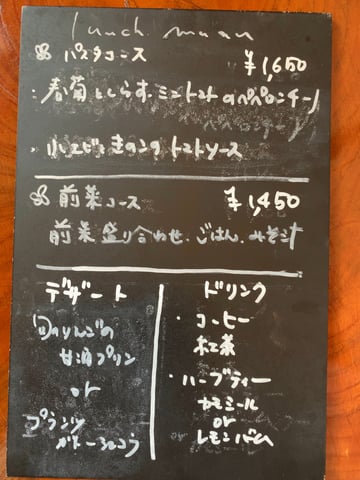 lunch menu
パスタコース ¥1,650
・春菊としらす、ミニトマトのペペロンチーノ
・小エビときのこの トマトソース
前菜コース ¥1,450
前菜盛り合わせ、ごはん、みそ汁
デザート
りんごの
甘酒プリン
or
ブランツ
ガトーショコラ
ドリンク
・コーヒー
紅茶
・ハーブティー
カモミール
or
レモンバーム